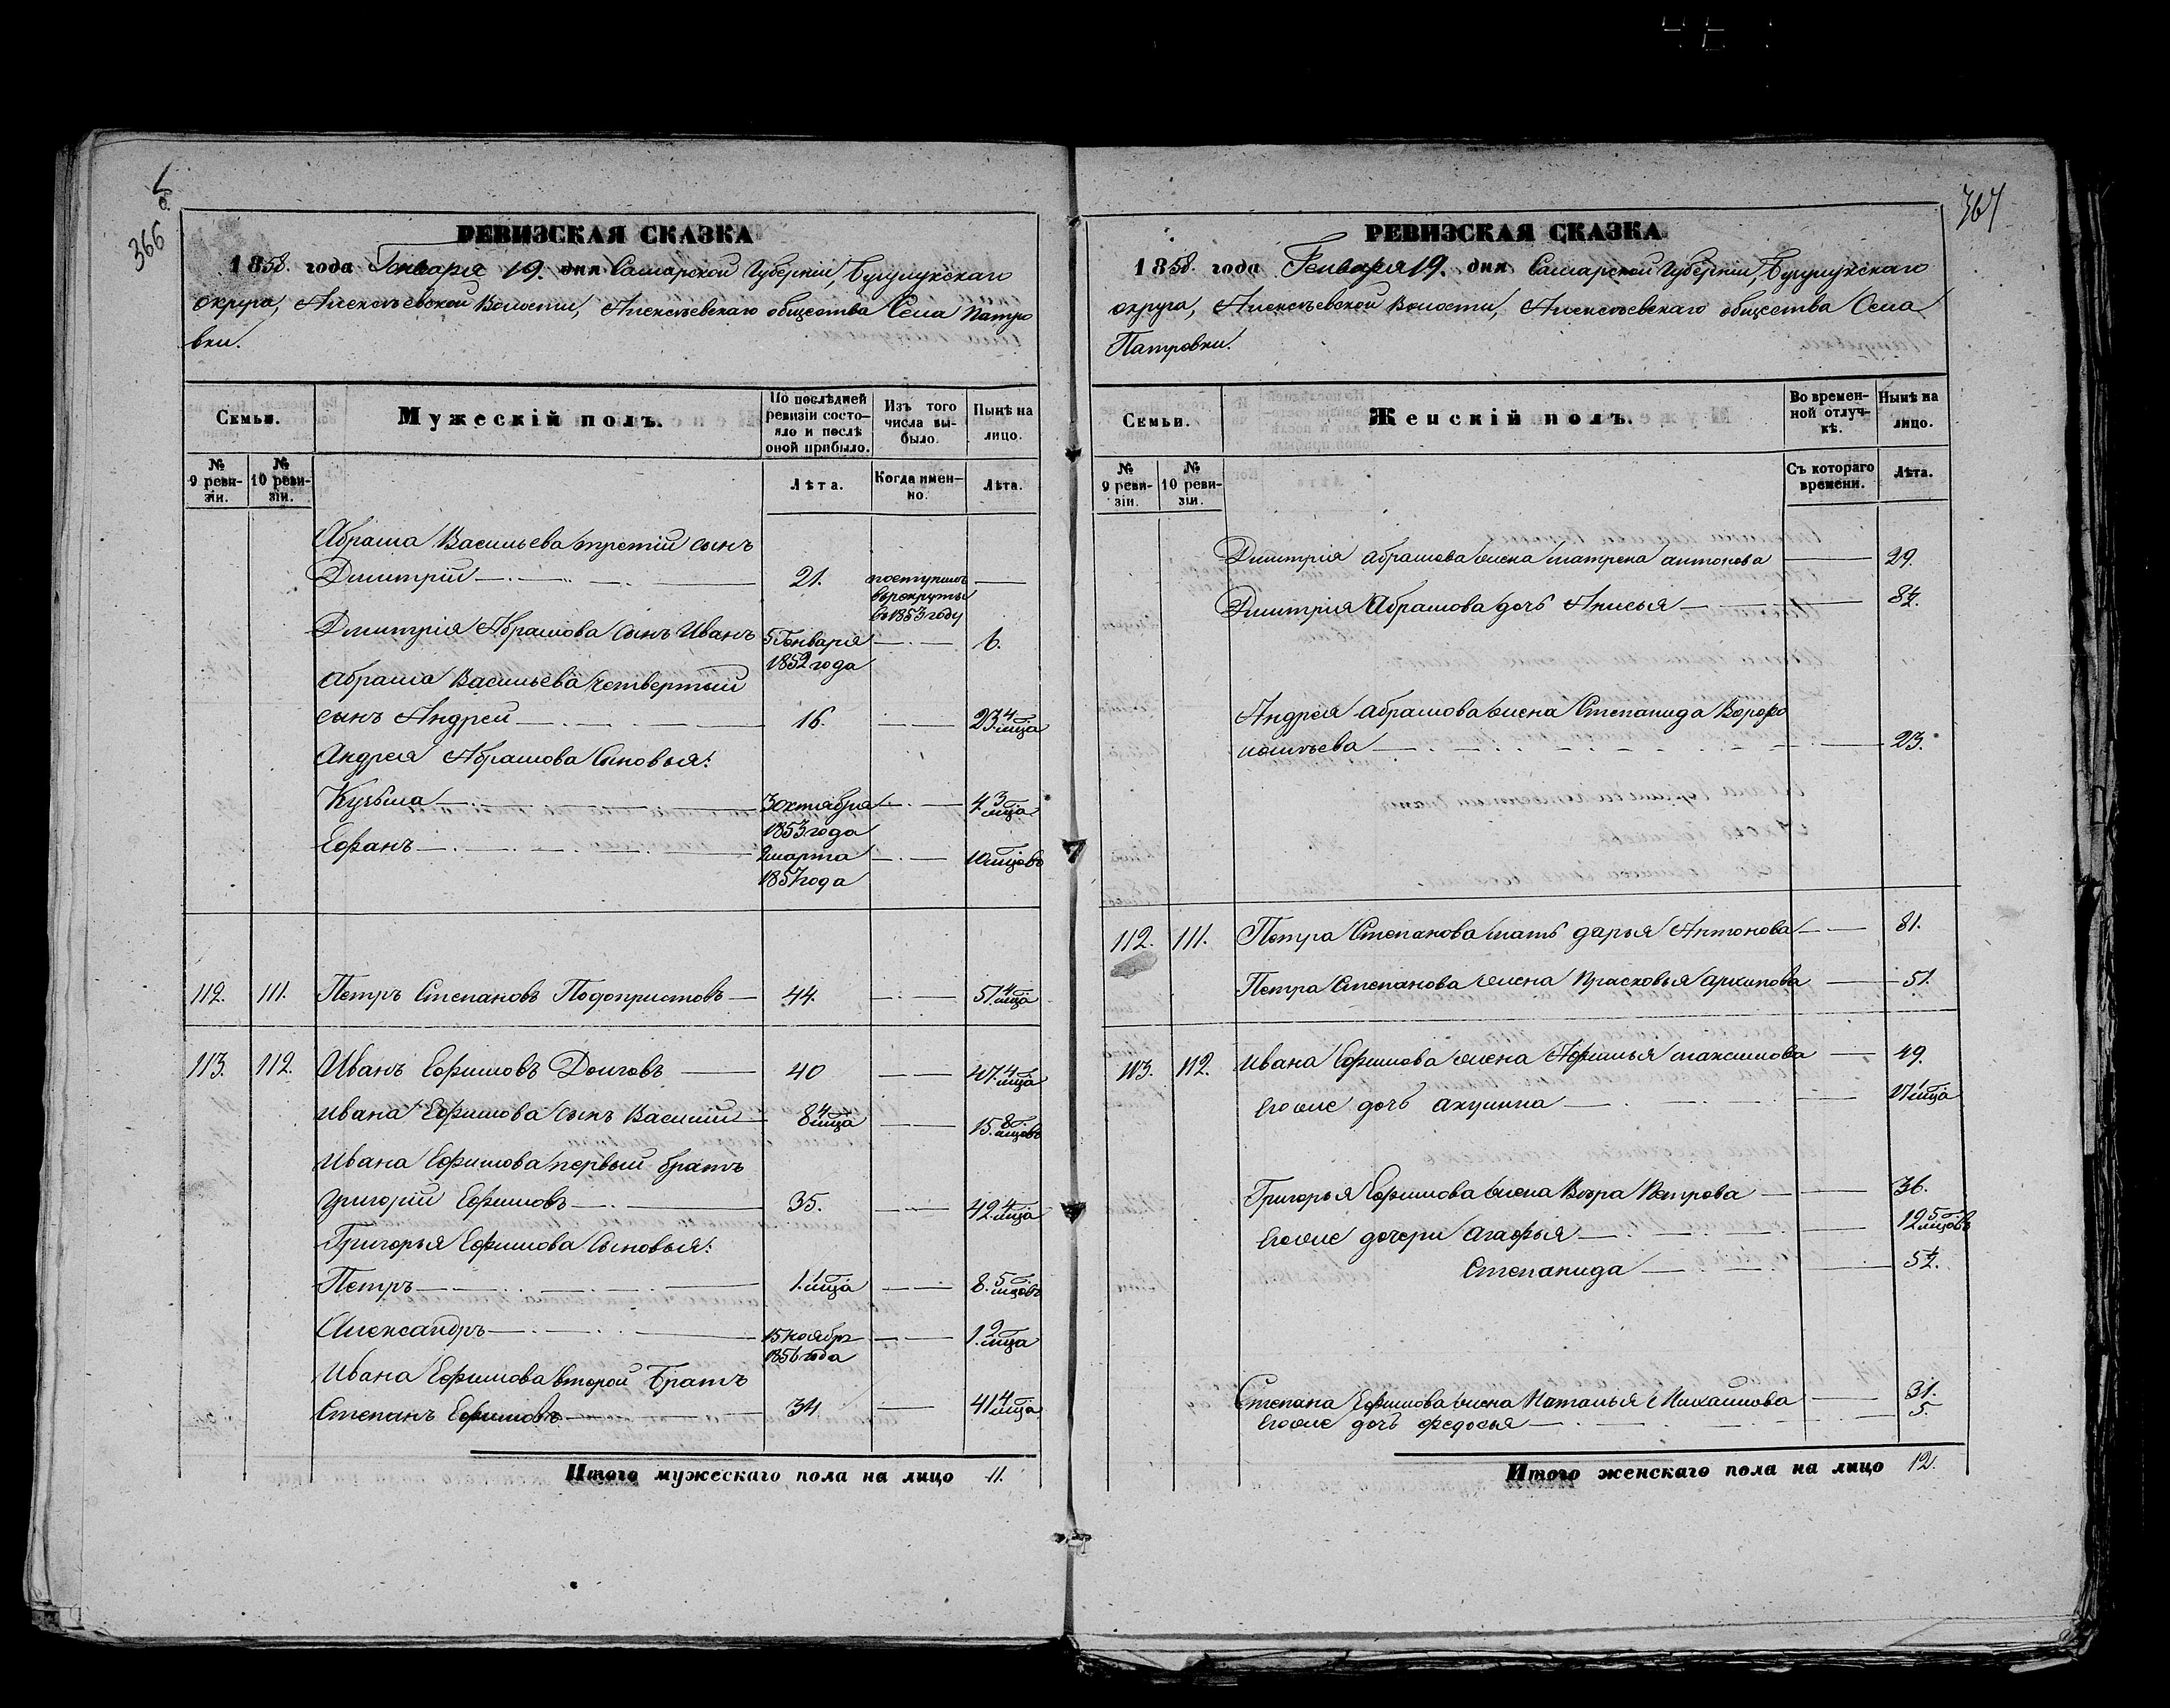 366
об.
РЕВИЗСКАЯ СКАЗКА
1858. года Генваря 19. дня Самарской Губерніи, Бузулукскаго
округа, Алексѣевской Волости, Алексѣевскаго общества Села Патро
вки.
Семьи.
Мужескій полъ.
По послѣдней
ревизіи состо-
яло и послѣ
оной прибыло.
Изъ того
числа вы-
было.
Нынѣ на
лицо.
№
9 реви-
зіи.
№
10 реви-
зіи.
Лѣта.
Когда имен-
но.
Лѣта.
Абрама Васильева третій сынъ
Димитрій 21. поступилъ
въ рекруты
въ 1853 году
Дмитрія Абрамова сынъ Иванъ 5 Генваря 6.
1852 года
Абрама Васильева четвертый
сынъ Андрей 16. 23. 4 мца
Андрея Абрамова Сыновья:
Кузьма 3 октября 4 3 мца
1853 года
Ефанъ 2 марта 10 мцовъ
1857 года
112. 111. Петръ Степановъ Подопристовъ 44. 51. 4 мца
113. 112. Иванъ Ефимовъ Долговъ 40 47. 4 мца
Ивана Ефимова сынъ Василій 8 4 мца 15. 8 мцовъ
Ивана Ефимова первый братъ
Григорій Ефимовъ 35. 42. 4 мца
Григорья Ефимова Сыновья:
Петръ 1. 1 мца 8. 5 мцовъ
Александръ 15 ноябр 1. 2 мца
1856 года
Ивана Ефимова второй Братъ
Степанъ Ефимовъ 34 41 4 мца
Итого мужескаго пола на лицо 11.
367
РЕВИЗСКАЯ СКАЗКА
1858. года Генваря 19. дня Самарской Губерніи, Бузулукскаго
округа, Алексѣевской Волости, Алексѣевскаго общества Села
Патровки.
Семьи.
Женскій полъ.
Во времен-
ной отлуч-
кѣ.
Нынѣ на
лицо.
№
9 реви-
зіи.
№
10 реви-
зіи.
Съ котораго
времени.
Лѣта.
Дмитрія Абрамова жена матрена антонова 29.
Дмитрія Абрамова дочь Анисья 8½.
Андрея Абрамова жена Степанида
23.
112. 111. Петра Степанова мать дарья Антонова 81.
Петра Степанова жена Прасковья архипова 51.
113. 112. Ивана Ефимова жена Афимья максимова 49.
Егоже дочь акулина 17 1 мца
Григорья Ефимова жена Вѣра Петрова 36.
Егоже дочери Агафья 12 5 мцовъ
Степанида 5½.
Степана Ефимова жена Наталья Михайлова 31.
Егоже дочь федосья 5.
Итого женскаго пола на лицо 12.